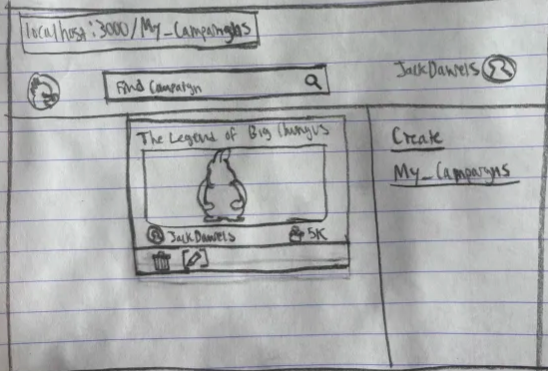 localhost:3000/My_Campaigns
Find Campaign
JackDaniels
The Legend of Big Chungus
JackDaniels
5K
Create
My_Campaigns